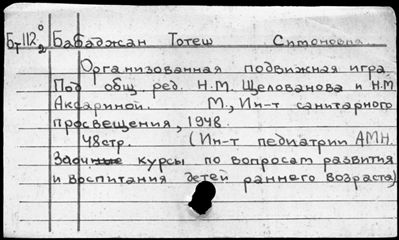 Бт112⁰₂ Бабаджан Тотеш Симоновна.
Организованная подвижная игра.
Под общ. ред. Н.М. Щелованова и Н.М.
Аксариной. М., Ин-т санитарного
просвещения, 1948.
48стр. (Ин-т педиатрии АМН.
Заочные курсы по вопросам развития
и воспитания детей раннего возраста)